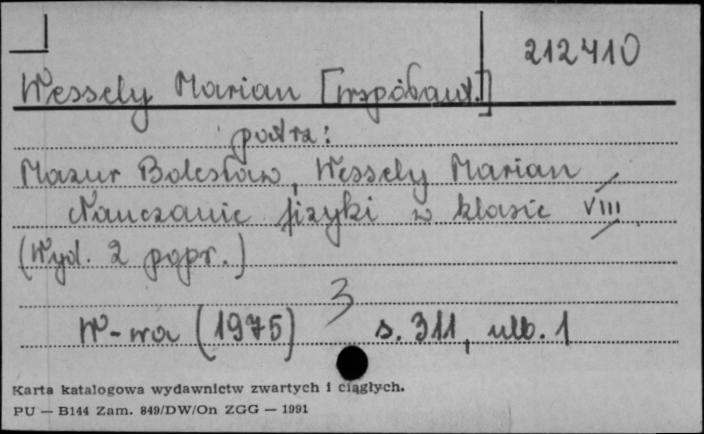 212410
Wessely Marian [współaut.]
patrz:
Mazur Bolesław, Wessely Marian
Nauczanie fizyki w klasie VIII
(Wyd. 2 popr.)
3
W-wa (1975) s. 311, nlb. 1
Karta katalogowa wydawnictw zwartych i ciągłych.
PU — B144 Zam. 849/DW/On ZGG — 1991